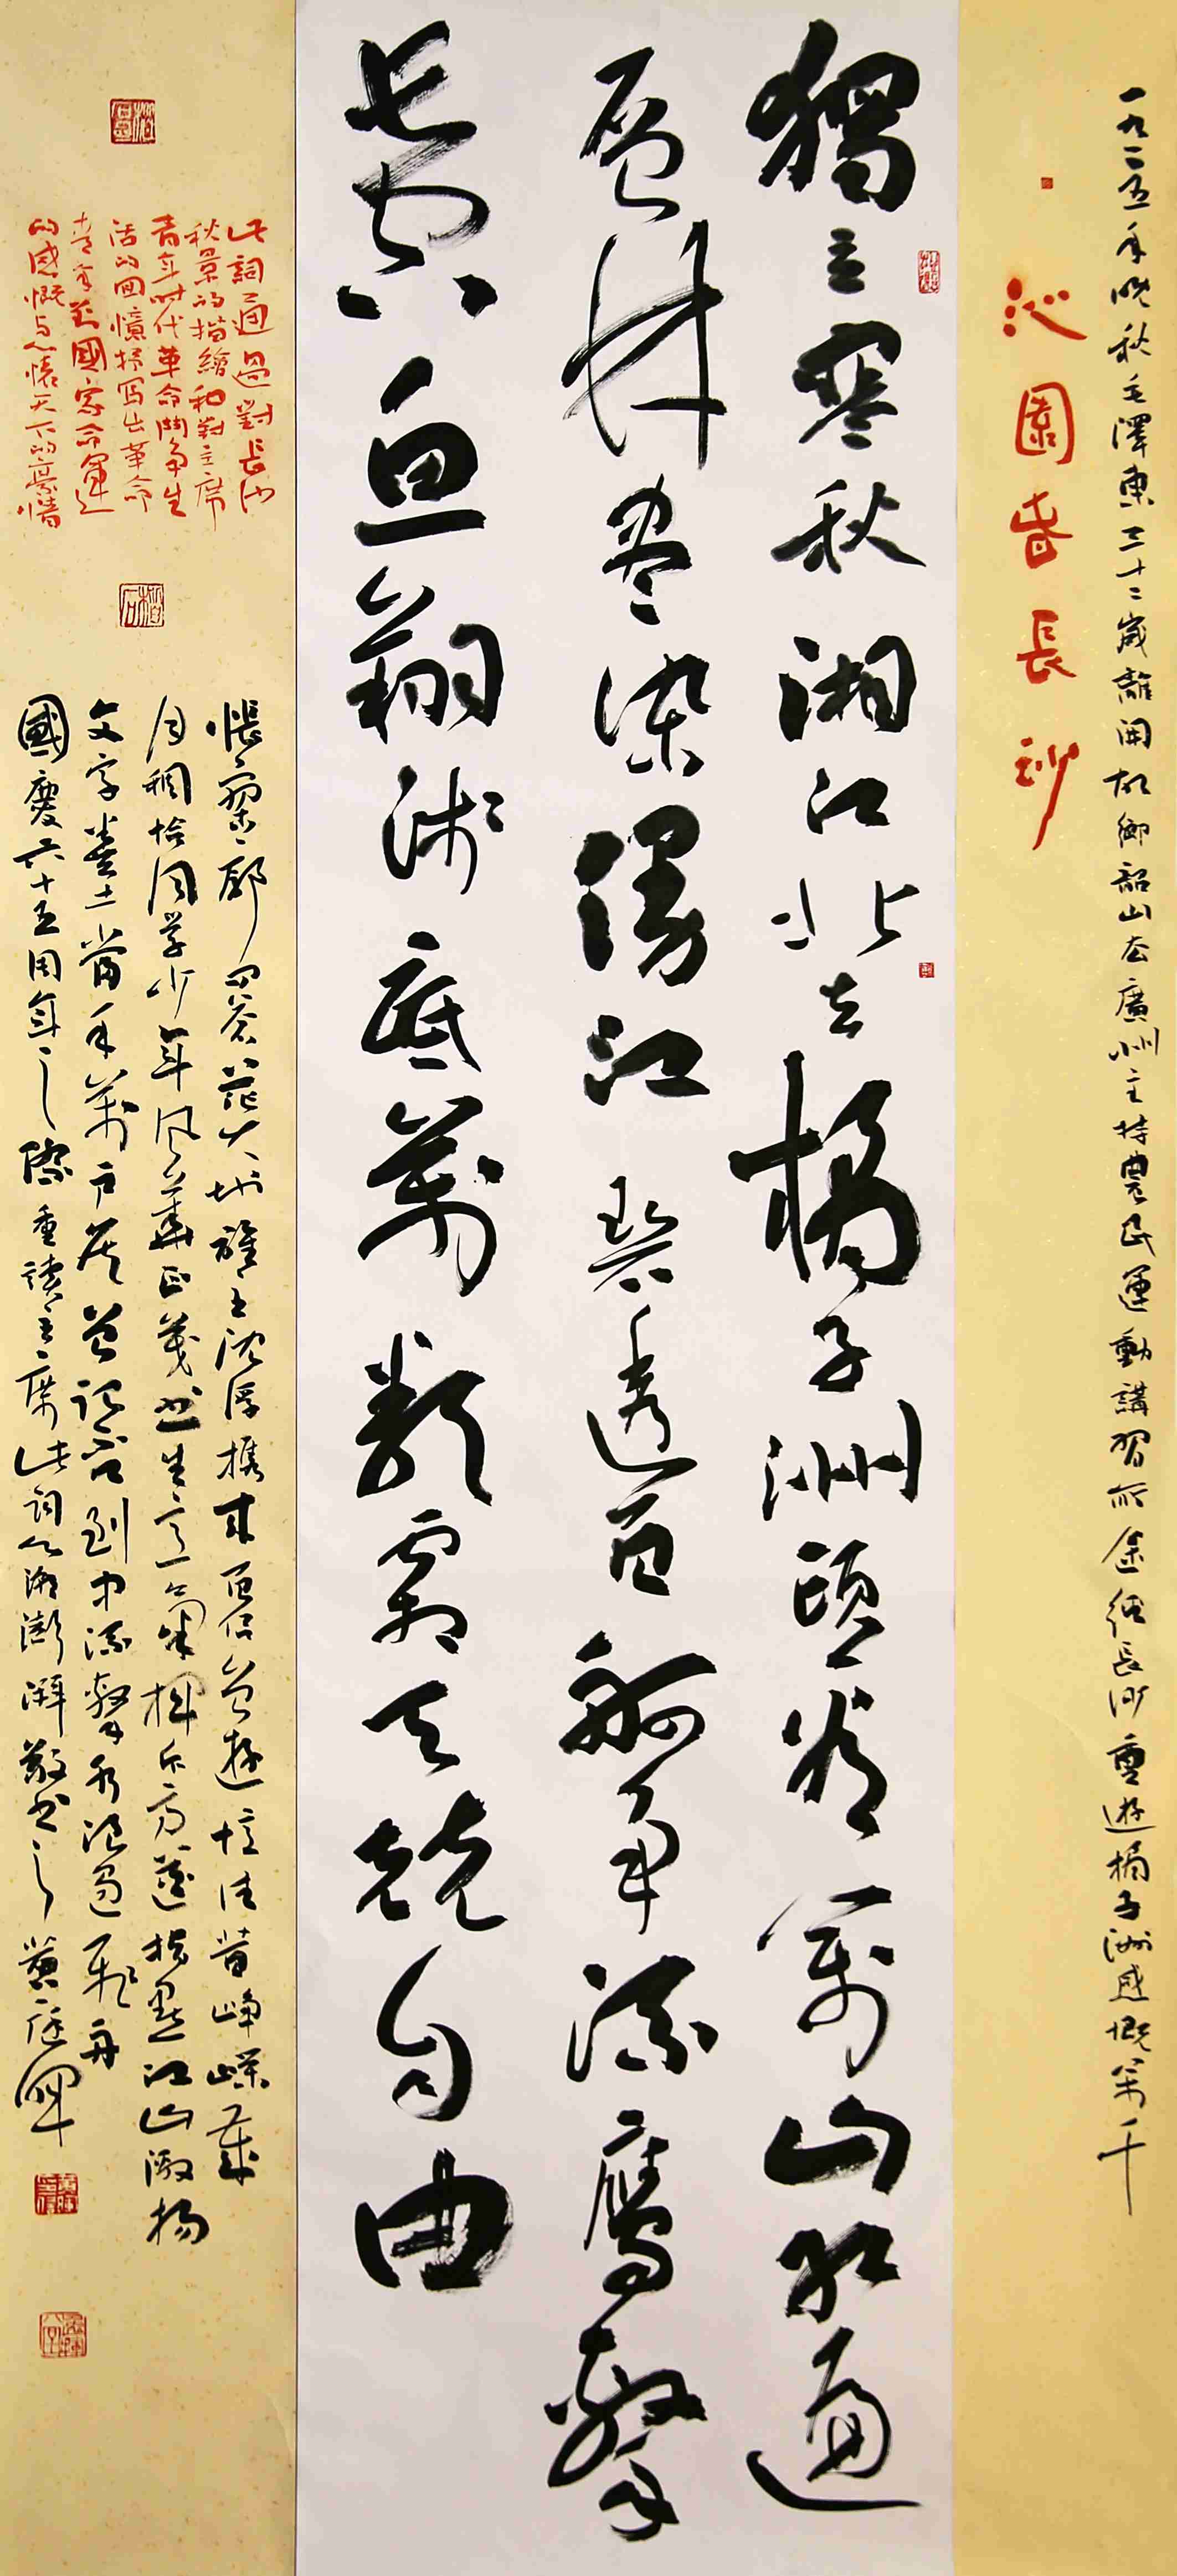 一九二五年晚秋毛澤東三十二歲離開故鄉韶山去廣州主持農民運動講習所途經長沙重遊橘子洲感慨萬千
沁園春長沙
獨立寒秋湘江北去橘子洲頭看萬山紅遍
層林盡染漫江碧透百舸爭流鷹擊
長空魚翔淺底萬類霜天競自由
此詞通過對長沙
秋景的描繪和對主席
青年時代革命鬥爭生
活的回憶抒寫出革命
青年對國家命運
的感慨与心懷天下的豪情
悵寥廓問蒼茫大地誰主沈浮攜來百侶曾遊憶往昔崢嶸歲
月稠恰同學少年風華正茂書生意氣揮斥方遒指點江山激揚
文字糞土當年萬戶侯曾記否到中流擊水浪遏飛舟
國慶六十五周年之際重讀主席此詞心潮澎湃敬書之黃庭